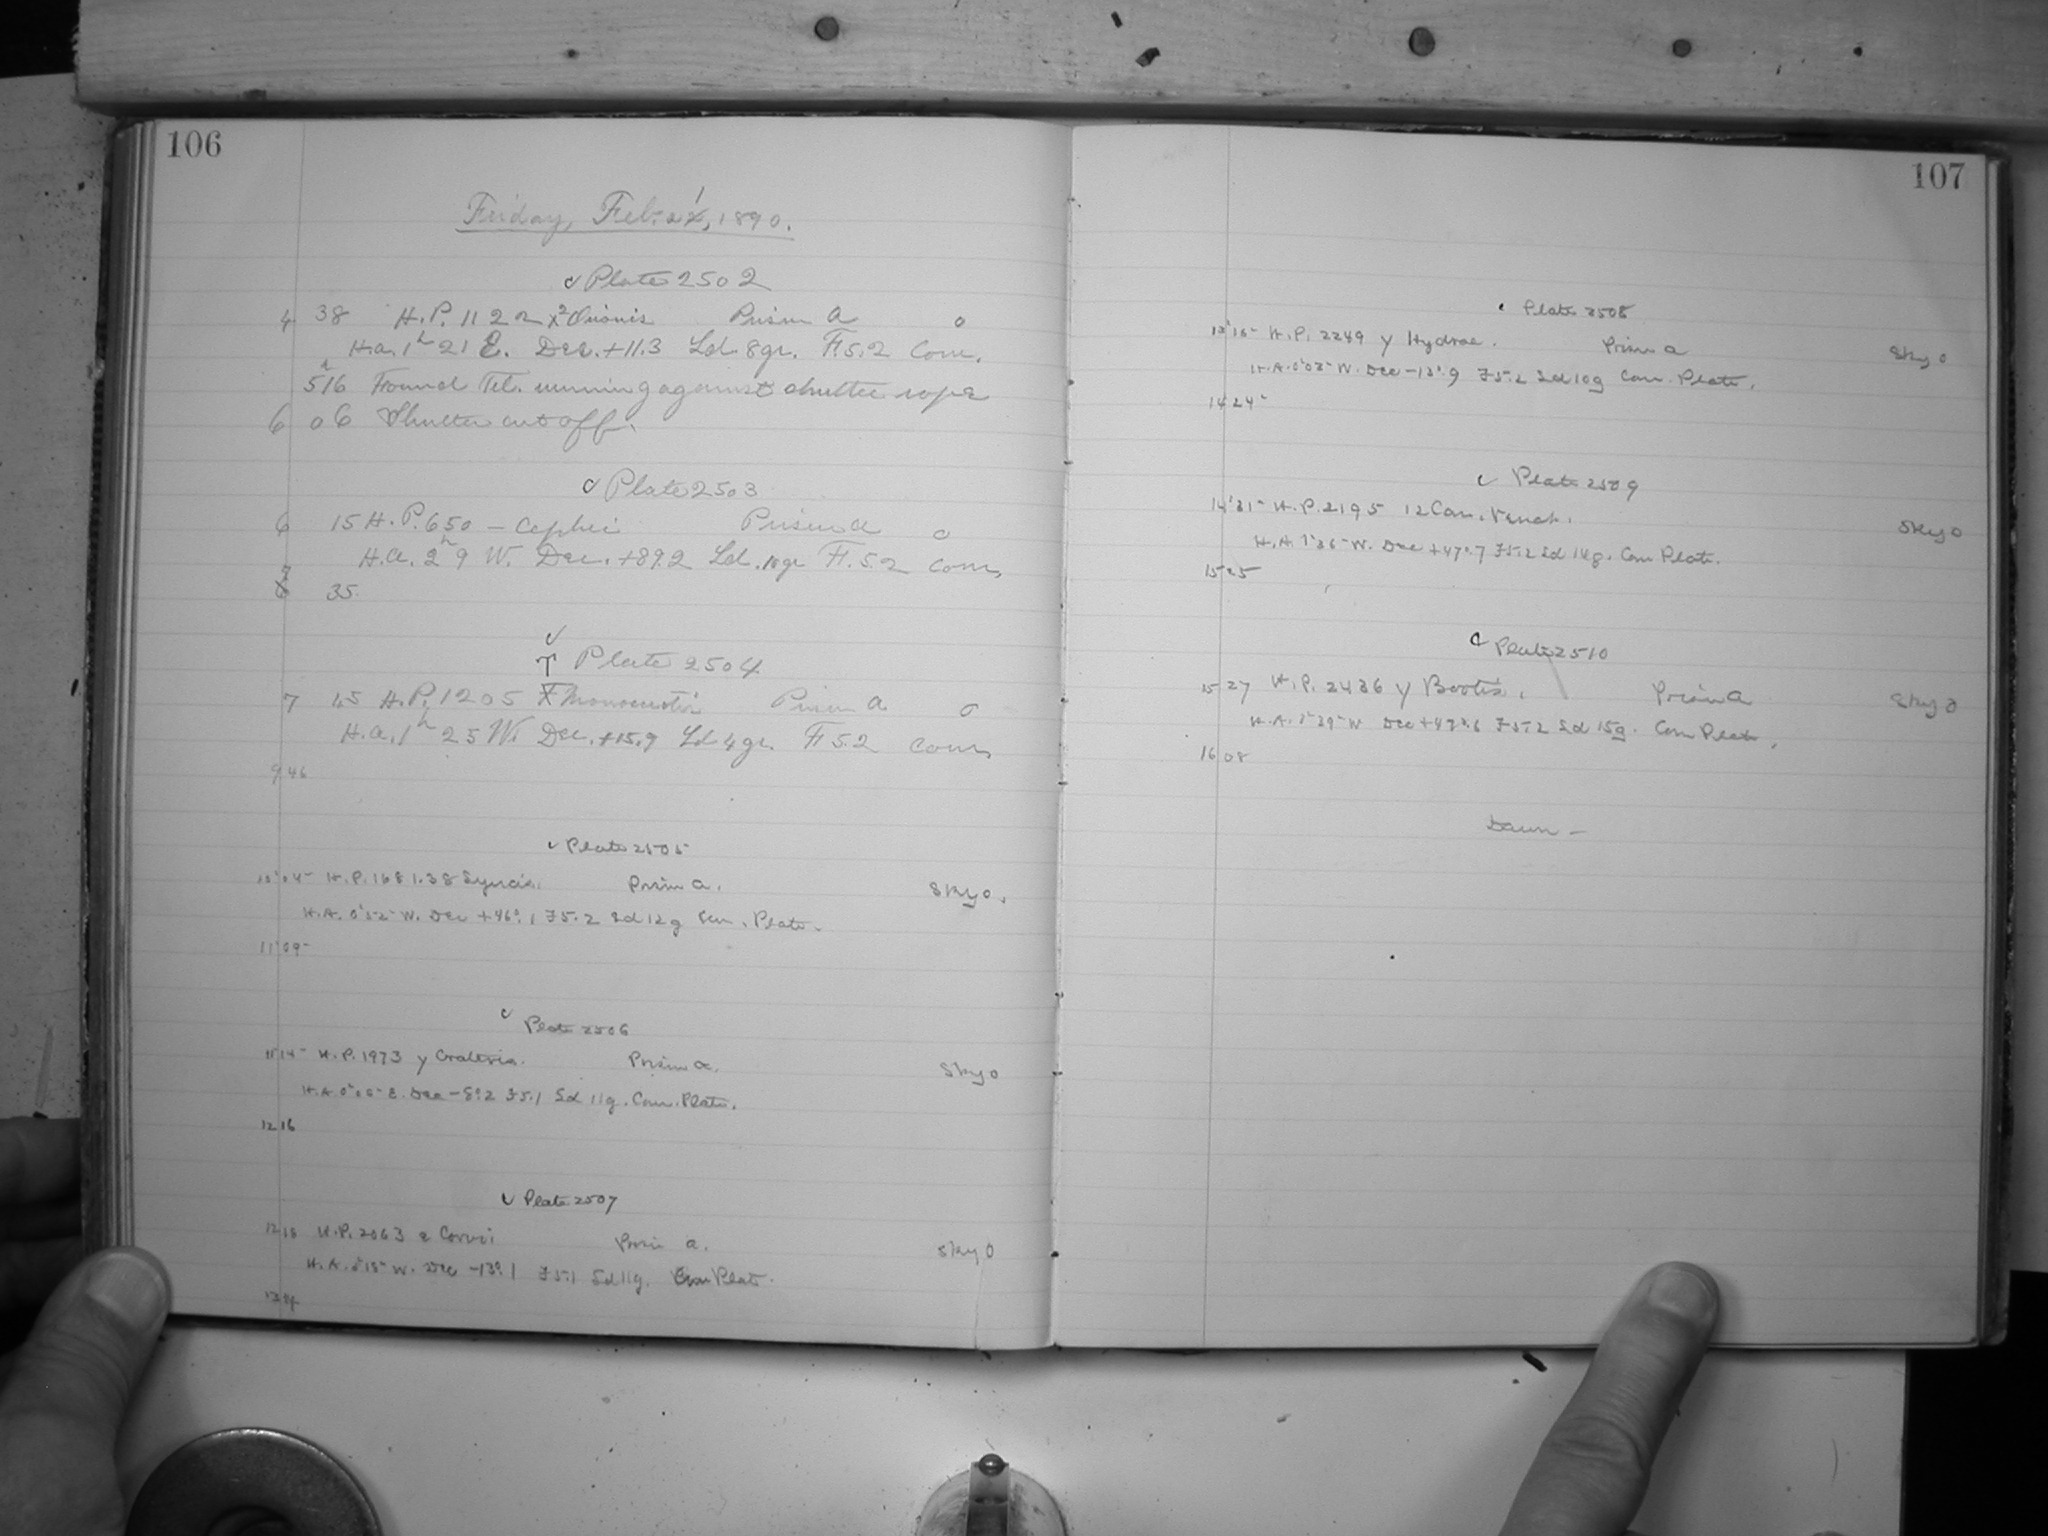 106
Friday, Feb. 21, 1890.
Plate 2502
4 38 H.P. 1122 χ² Orionis Prism A 0
H.a. 1h 21 E. Dec. +11.3 Ld. 8gr. F. 5.2 Com.
5h 16 Found Tel. running against shutter rope
6 06 Shutter cut off.
Plate 2503
6 15 H.P. 650 – Cephei Prism a 0
H.a. 2h 9 W. Dec. +89.2 Ld. 10gr F. 5.2 Com,
7
35
Plate 2504
7 45 H.P. 1205 Prism A 0
H.a. 1h 25 W. Dec. +15.9 Ld 4gr. F 5.2 Com,
9 46
Plate 2505
10 04 H.P. 1681. 38 Prism a. Sky 0.
H.A. 0h 52 W. Dec +46°.1 F 5.2 Sd 12g Plate.
11 09
Plate 2506
11 14 H.P. 1973 γ Crateris. Prism a. Sky 0
H.A. 0h 05 E. Dec –8°.2 F 5.1 Sd 11g. Com. Plate.
12 16
Plate 2507
12 18 H.P. 2063 Corvi Prism a. Sky 0
H.A. 0h 15 W. Dec –13°.1 F 5.1 Sd 11g. Com Plate.
107
Plate 2508
13 15 H.P. 2249 γ Hydrae. Prism a Sky 0
H.A. 0h 03 W. Dec –13°.9 F 5.2 Sd 10g Com. Plate.
14 24
Plate 2509
14 31 H.P. 2195 12 Can. Venat. Sky 0
H.A. 1h 36 W. Dec +47°.7 F 5.2 Sd 14g. Com Plate.
15 25
Plate 2510
15 27 H.P. 2436 γ Bootis. Prism A Sky 0
H.A. 1h 29 W Dec +47°.6 F 5.2 Sd 15g. Com Plate.
16 08
Dawn –